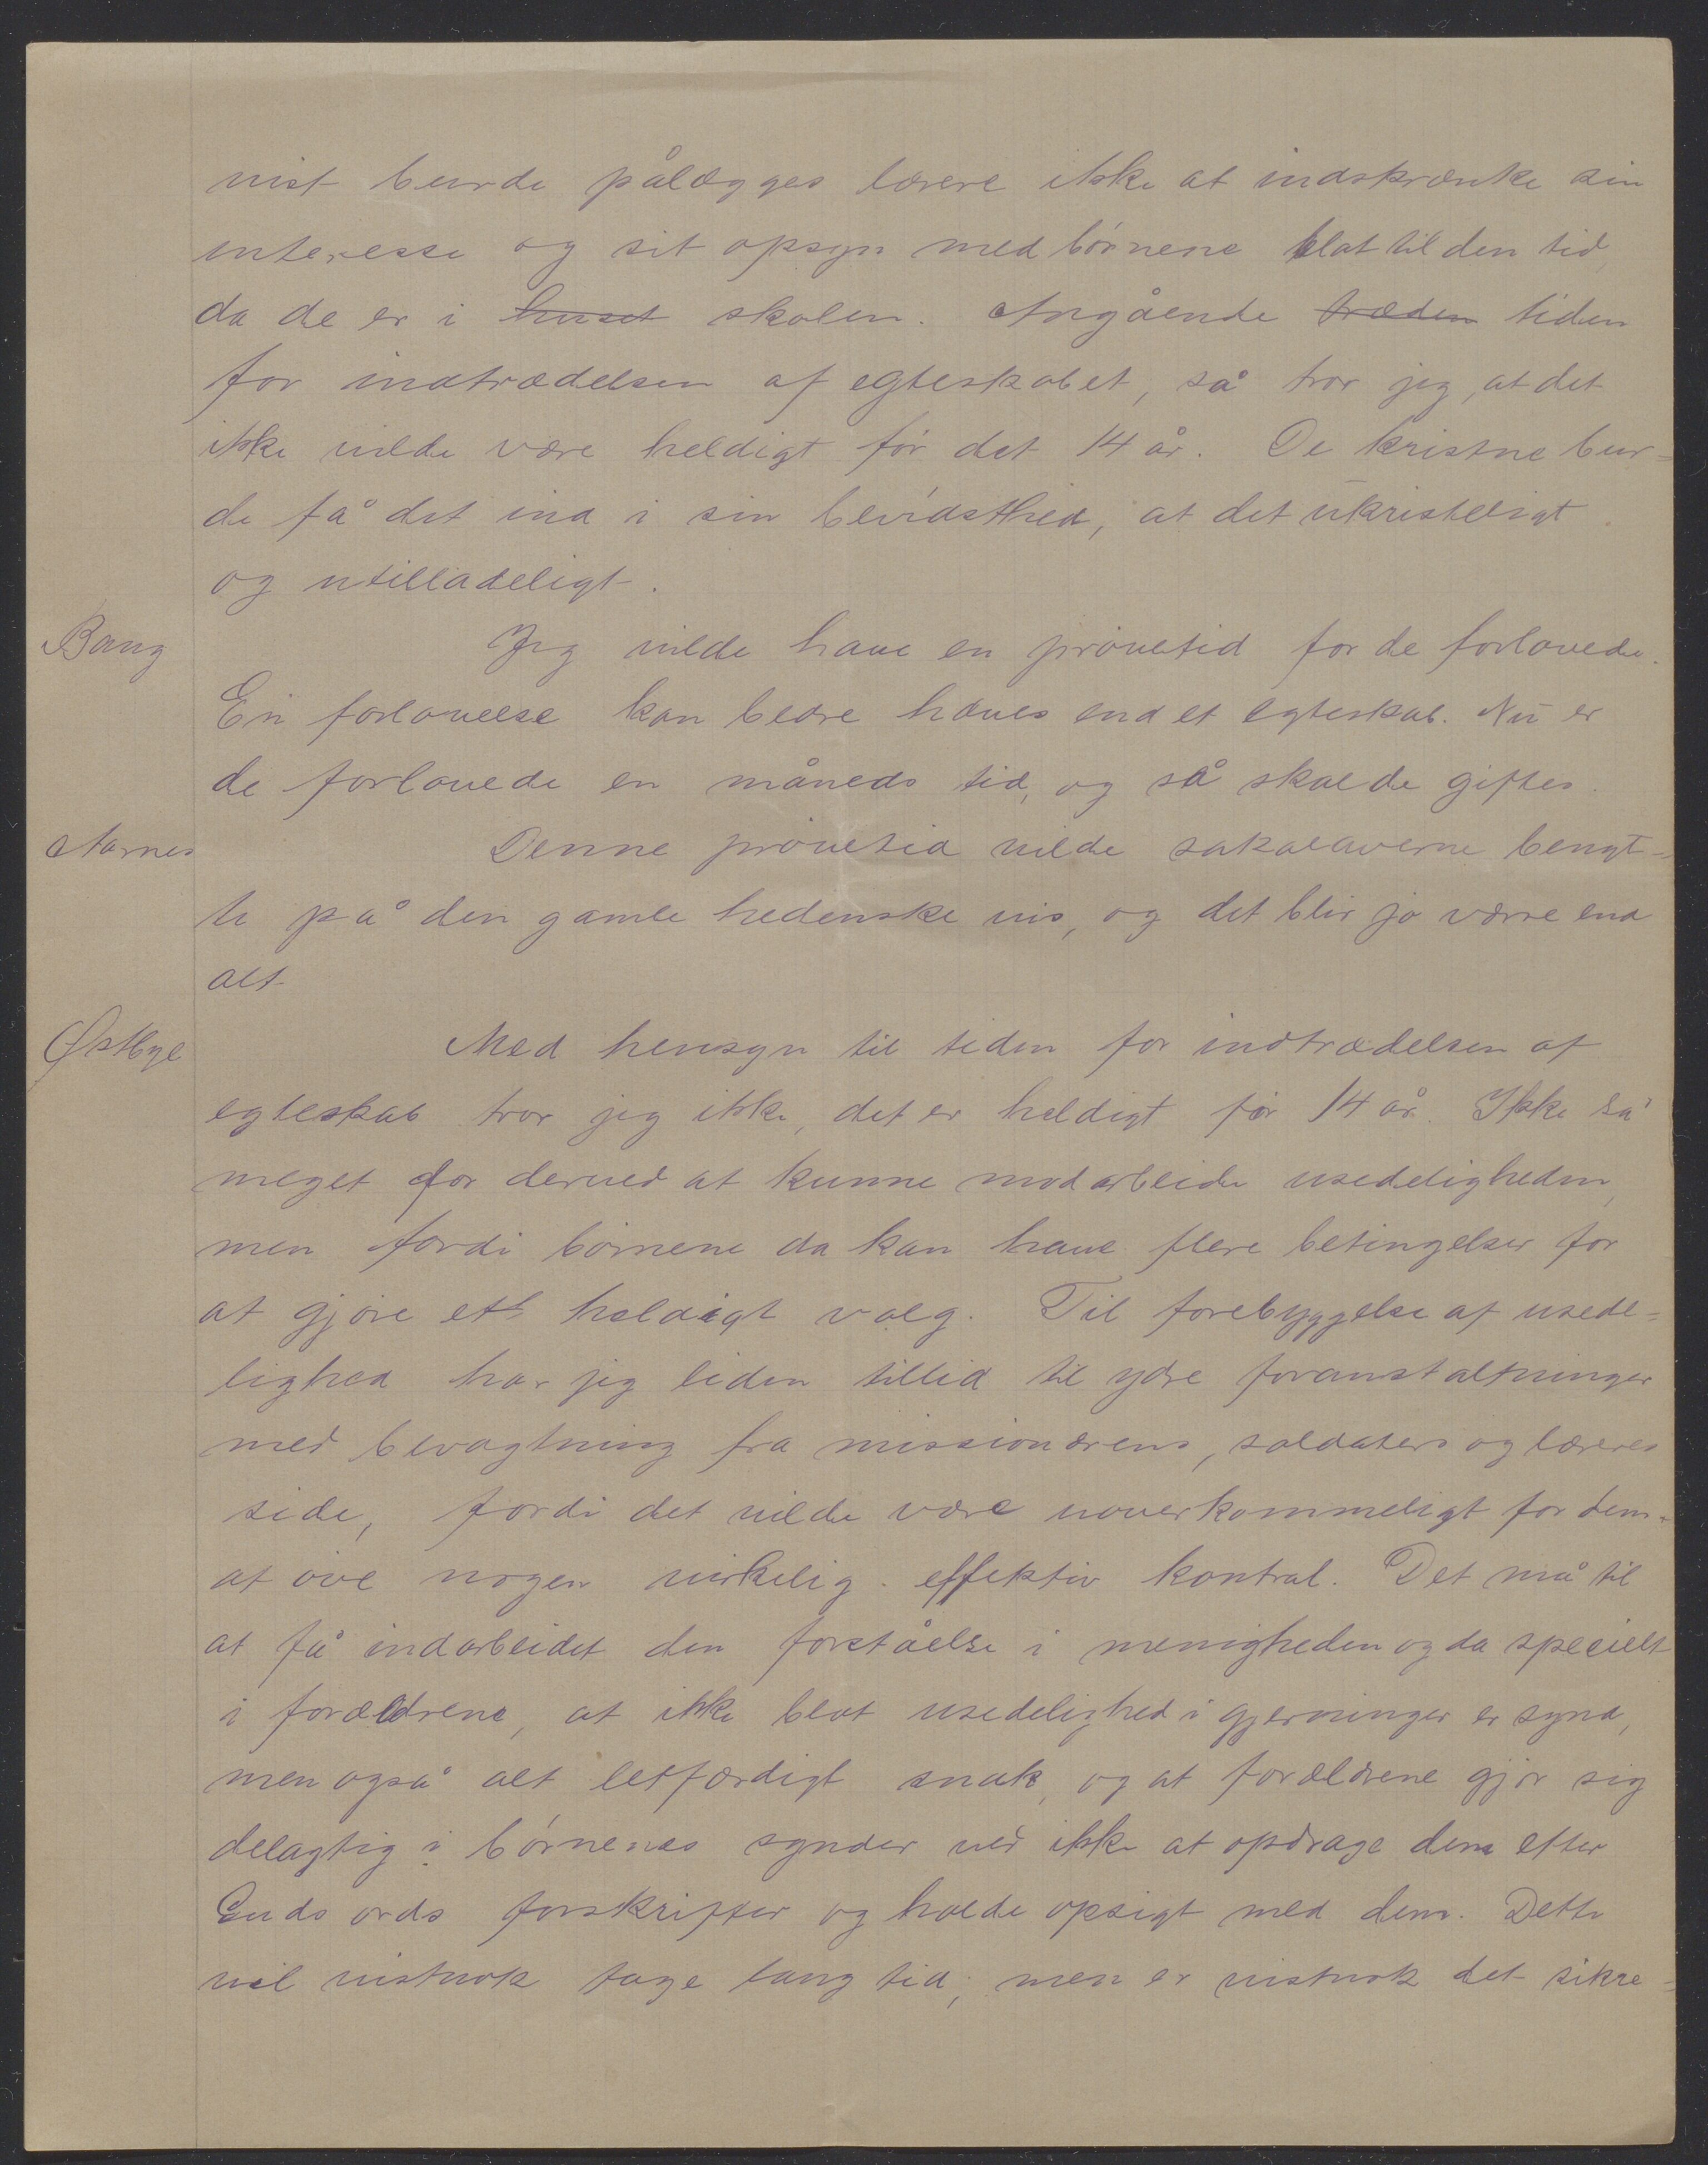 vist burde pålægges lærere ikke at indskrænke sin
interesse og sit opsyn med børnene blot til den tid,
da de er i huset skolen. Angående træden tiden
for indtrædelsen af egteskabet, så tror jeg, at det
ikke vilde være heldigt før det 14 år. De kristne bur-
de få det ind i sin bevidsthed, at det ukristeligt
og utilladeligt.
Bang Jeg vilde have en prøvetid for de forlovede.
En forlovelse kan bedre hæves end et egteskab. Nu er
de forlovede en måneds tid, og så skal de giftes.
Aarnes Denne prøvetid vilde sakalaverne benyt-
te på den gamle hedenske vis, og det blir jo værre end
alt
Østbye Med hensyn til tiden for indtrædelsen af
egteskab tror jeg ikke, det er heldigt før 14 år. Ikke så
meget for derved at kunne modarbeide usedeligheden,
men fordi børnene da kan have flere betingelser for
at gjøre ett heldigt valg. Til forebyggelse af usede-
lighed har jeg liden tillid til ydre foranstaltninger
med bevogtning fra missionærens, soldaters og læreres
side, fordi det vilde være uoverkommeligt for dem
at øve nogen virkelig effektiv kontrol. Det må til
at få indarbeidet den forståelse i menigheden og da specielt
i forældrene, at ikke blot usedelighed i gjerninger er synd,
men også alt letfærdigt snak, og at forældrene gjør sig
delagtig i børnenes synder ved ikke at opdrage dem efter
Guds ords forskrifter og holde opsigt med dem. Dette
vil vistnok tage lang tid; men er vistnok det sikre-